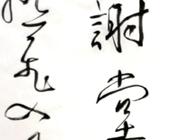 謝堂
飛入